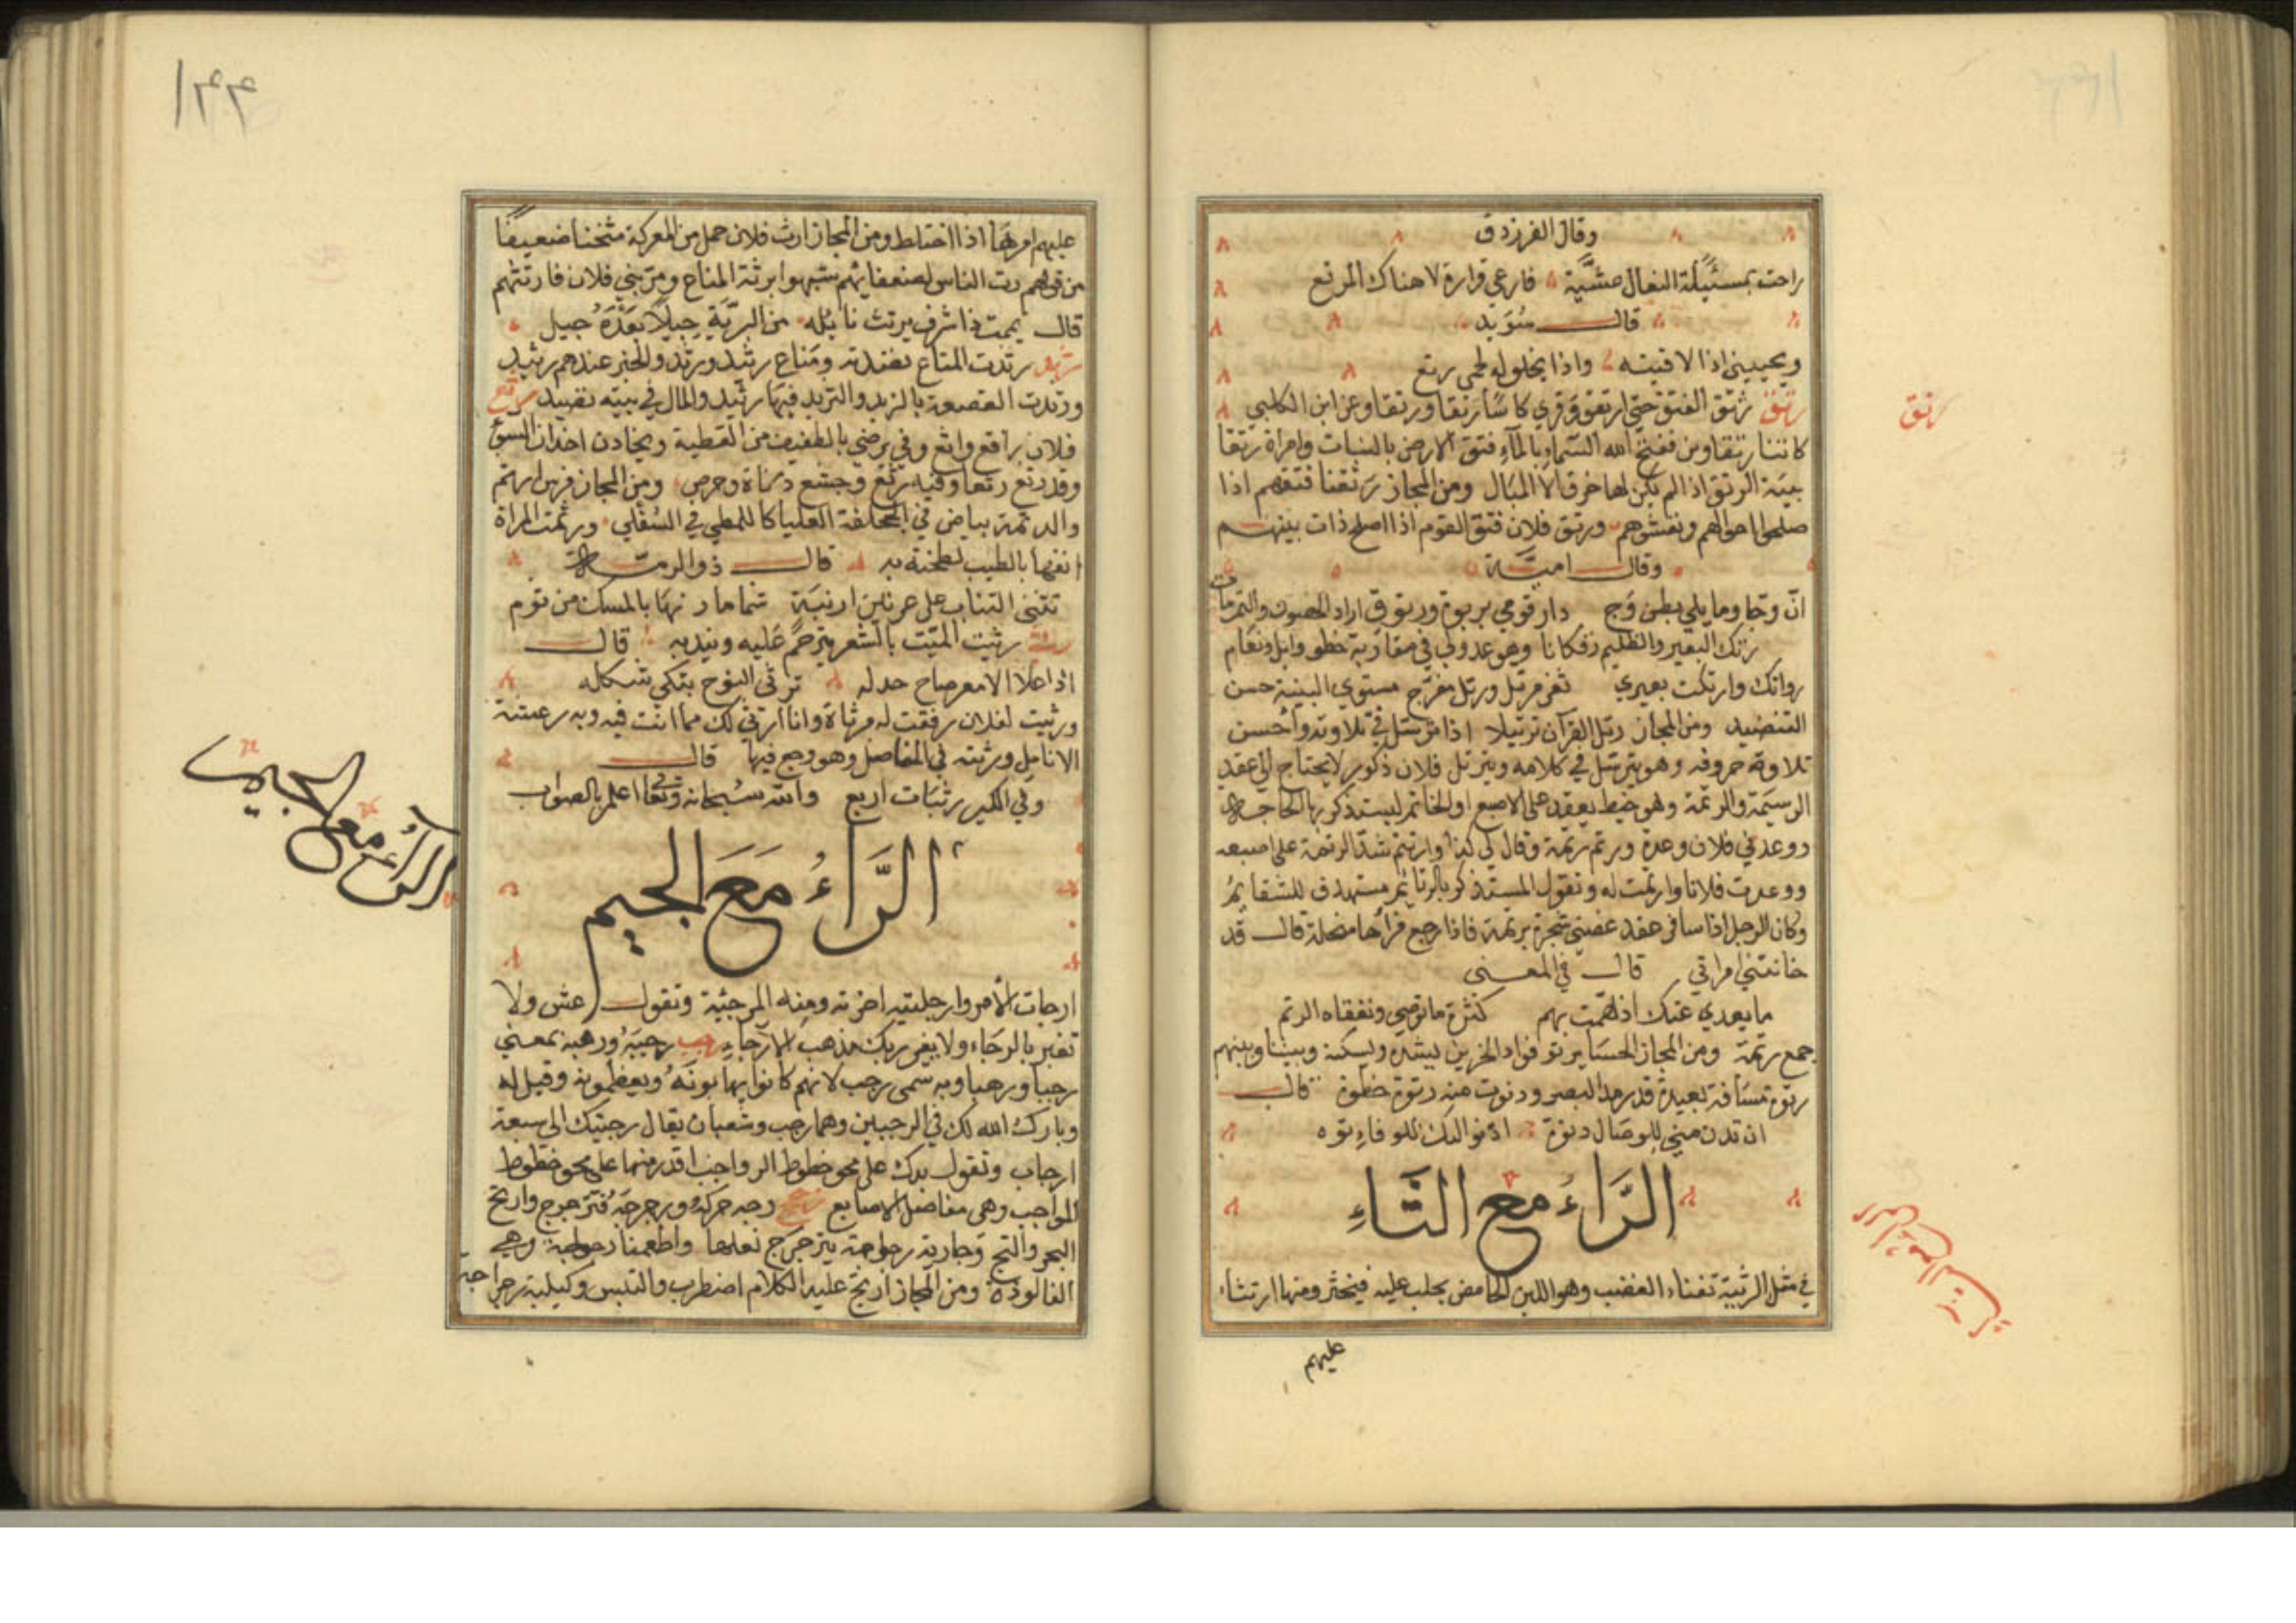 وقال الفرزدق
راحت بمسئيلة البغال عشية فارعي فزارة لا هناك المرتع
قال سويد
ويحييني اذا لاقيته واذا يخلو له لحمي رتع
رتق
رتق رتق الفتق حتى ارتقق وقرئ كانتا رتقا ورتقا وعن ابن الكلبي
كانتا رتقاوين ففتق الله السماء بالماء وفتق الارض بالنبات وامراة رتقا
بينة الرتق اذا لم يكن لها خرق الا المبال ومن المجاز رتقنا فتقهم اذا
صلحوا احوالهم ونعشوهم ورتق فلان فتق القوم اذا اصلح ذات بينهم
وقال امية
انّ وجا وما يلي بطن وج دار قومي بربوة ورتوق اراد الحصون والتمرمات
رتك البعير والظليم رتكانا وهو عدو في مقاربة خطو وابل ونعام
رواتك وارتكت بعيري ثغر مرتل ورتل مفلج مستوي البنية حسن
التنضيد ومن المجاز رتل القرآن ترتيلا اذا ترسل في تلاوته واحسن
تلاوة حروفه وهو يترسل في كلامه ويترتل فلان ذكور لا يحتاج الى عقد
الرسيمة والرتمة وهو خيط يعقد على الاصبع او الخاتم ليستذكر بها الحاجة
ووعدني فلان وعدة ورتم رتمة وقال لي كذا وارتتم شد الرتمة على اصبعه
ووعدت فلانا وارتمت له وتقول المستذكر بالرتائم مستهدف للشتائم
وكان الرجل اذا سافر عقد غصني شجرة برتمة فاذا رجع فرآها منحلة قال قد
خانتني امراتي قال في المعنى
ما يعدي عنك اذ همت بهم كثرة ما توصي وتعقاد الرتم
جمع رتمة ومن المجاز الحسا يرتو فواد الحزين ليشده ويسكنه وبيننا وبينهم
رتوة مسافة بعيدة قدر مد البصر ودنوت منه رتوة خطوة قال
ان تدن مني للوصال دنوة ادنو اليك للوفاء رتوه
الرَّاءُ مع الثَّاءِ
في مثل الرثيئة تفثاء الغضب وهو اللبن الحامض يحلب عليه فيخثر ومنها ارتثاء
عليهم
١٤٤
عليهم امرهم اذا اختلط ومن المجاز ارتث فلان حمل من المعركة مثخنا ضعيفا
من قولهم رث الناس لضعفائهم شبهوا برثة المتاع ومر بني فلان فارتثهم
قال يممت ذا شرف يرتث نائله من البرية جيلا بعده جيل
رثد رثدت المتاع نضدته ومتاع رثيد ورثد والخير عندهم رثيد
ورثدت القصعة بالزبد والثريد فيها رثيد والمال في بيته نضيد رثع
فلان راقع واثع وفي يرضى بالطفيف من العطية ويخادن اخدان السوء
وقد رثع رثعا وفيه رثع وجشع دناة وحرص ومن المجاز فرس ارثم
والرثمة بياض في الجحفلة العليا كاللمظ في السفلى ورثمت المراة
انفها بالطيب لطخته به قال ذو الرمة
تثنى النقاب على عرنين ارنبة شماء مارنها بالمسك مرثوم
رثى رثيت الميت بالشعر يترحم عليه ويندبه قال
اذا علا الامعز صاح جندله ترثي النوح بتكي تشكله
ورثيت لفلان رققت له مرثاة وانا ارثي لك مما انت فيه وبه رعشة
الانامل ورثية في المفاصل وهو وجع فيها قال
وفي الكبير رثيات اربع والله سبحانه وتعالى اعلم بالصواب
الرَّاءُ مَعَ الجيم
الراء مع الجيم
ارجات الامر وارجيته اخرته ومنه المرجئة وتقول عش ولا
تغتر بالرجاء ولا يغرر بك مذهب الارجاء رجب رجبه ورهبه بمعنى
رجبا ورهبا وبه سمى رجب لانهم كانوا يهابونه ويعظمونه وقيل له
وبارك الله لك في الرجبين وهما رجب وشعبان يقال رجبتك الى سبعة
ارجاب وتقول يدك على محو خطوط الرواجب اقدر منها على محو خطوط
المواجب وهي مفاصل الاصابع رجج رجه حركه ورجرجه فترجرج وارتج
البحر والتج وجارية رجراجة يترجرج نعلها واطعمنا رجراجة وهي
الفالوذة ومن المجاز ارتج عليه الكلام اضطرب والتبس وكيلبة رجراجة